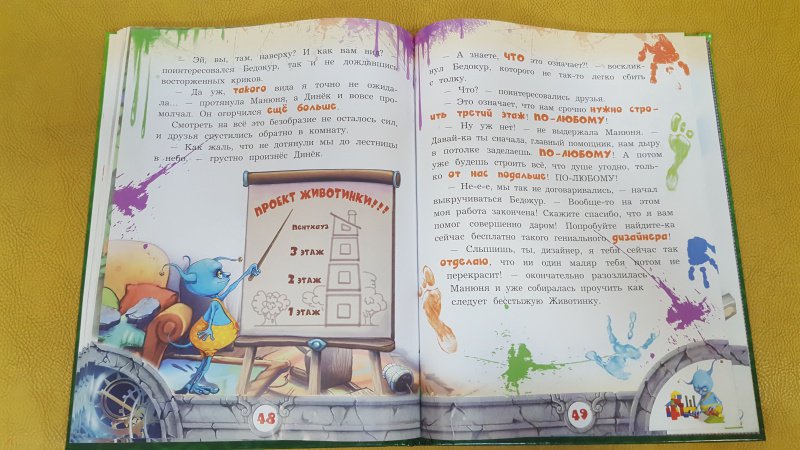 — Эй, вы, там, наверху? И как вам вид? —
поинтересовался Бедокур, так и не дождавшись
восторженных криков.
— Да уж, такого вида я точно не ожида-
ла... — протянула Манюня, а Динёк и вовсе про-
молчал. Он огорчился ещё больше.
Смотреть на всё это безобразие не осталось сил,
и друзья спустились обратно в комнату.
— Как жаль, что не дотянули мы до лестницы
в небо, — грустно произнёс Динёк.
ПРОЕКТ ЖИВОТИНКИ!!!
ПЕНТХАУЗ
3 ЭТАЖ
2 ЭТАЖ
1 ЭТАЖ
48
— А знаете, ЧТО это означает?! — восклик-
нул Бедокур, которого не так-то легко сбить
с толку.
— Что? — поинтересовались друзья.
— Это означает, что нам срочно нужно стро-
ить третий этаж! ПО-ЛЮБОМУ!
— Ну уж нет! — не выдержала Манюня. —
Давай-ка ты сначала, главный помощник, нам дыру
в потолке заделаешь. ПО-ЛЮБОМУ! А потом
уже будешь строить всё, что душе угодно, толь-
ко от нас подальше! ПО-ЛЮБОМУ!
— Не-е-е, мы так не договаривались, — начал
выкручиваться Бедокур. — Вообще-то на этом
моя работа закончена! Скажите спасибо, что я вам
помог совершенно даром! Попробуйте найдите-ка
сейчас бесплатно такого гениального дизайнера!
— Слышишь, ты, дизайнер, я тебя сейчас так
отделаю, что ни один маляр тебя потом не
перекрасит! — окончательно разозлилась
Манюня и уже собиралась проучить как
следует бесстыжую Животинку.
49